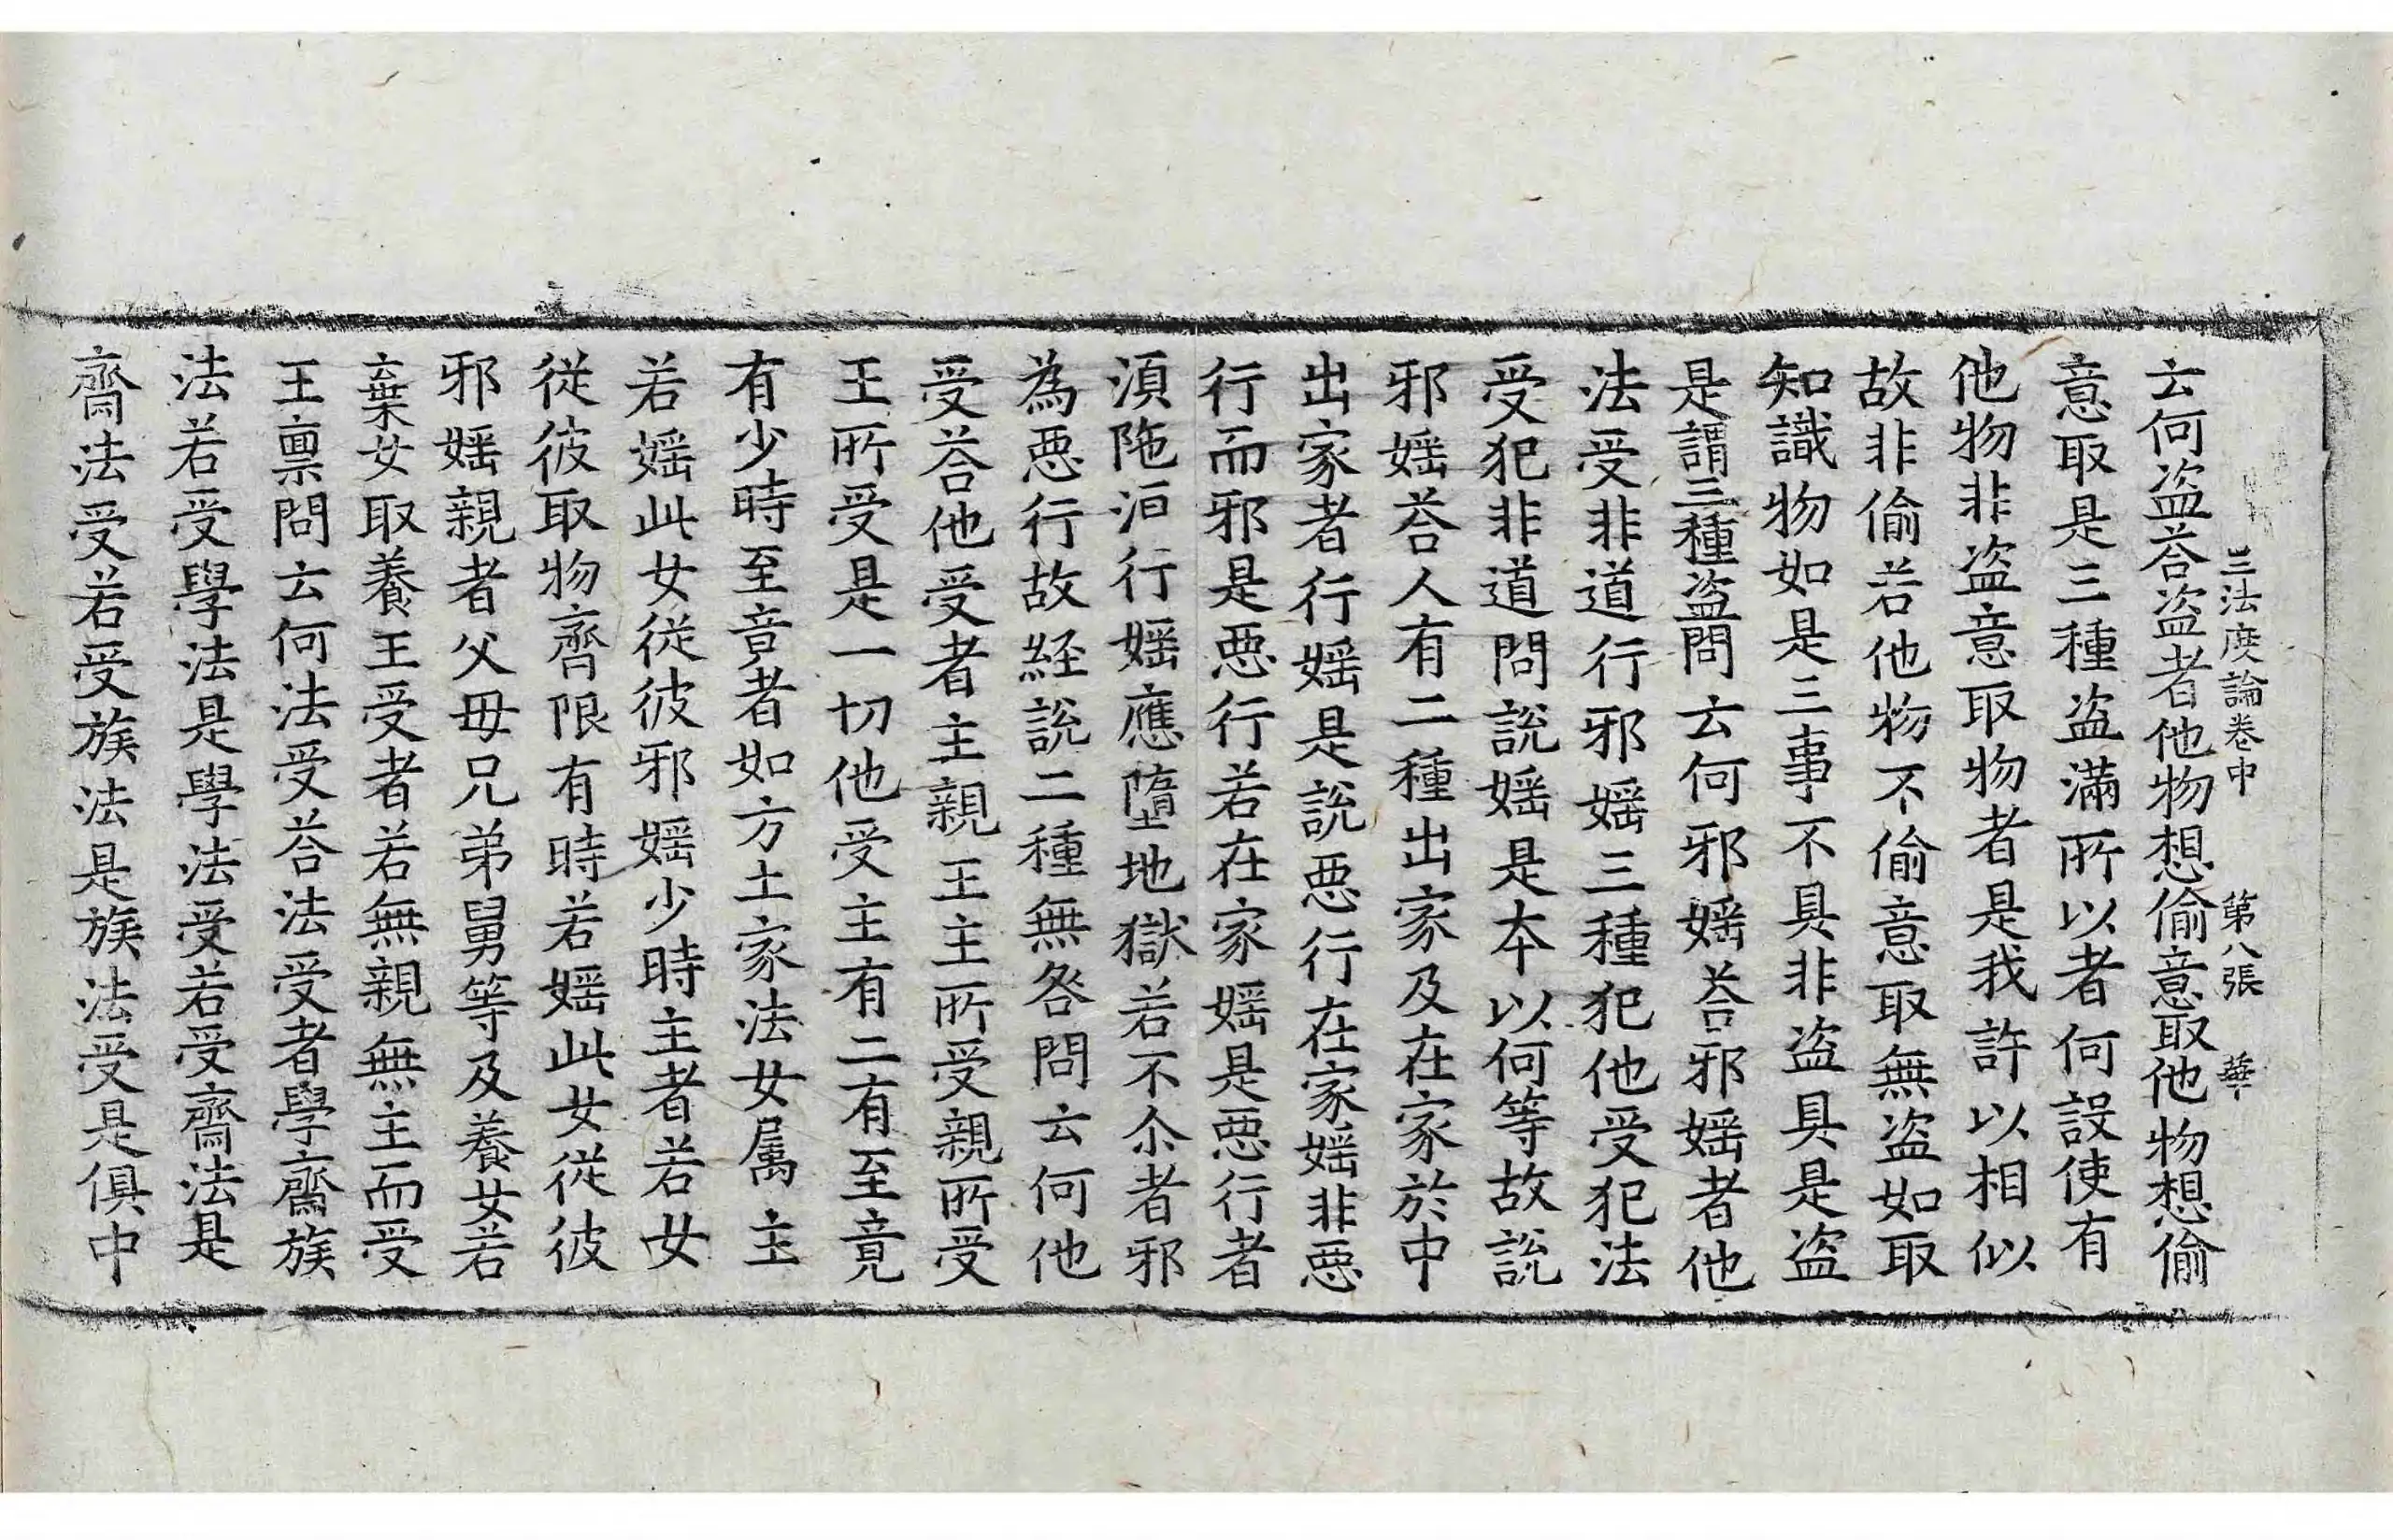 三法度論卷中 第八張 華
云何盗荅盗者他物想偷意取他物想偷
意取是三種盗滿所以者何設使有
他物非盗意取物者是我許以相似
故非偷若他物不偷意取無盗如取
知識物如是三事不具非盗具是盗
是謂三種盗問云何邪婬荅邪婬者他
法受非道行邪婬三種犯他受犯法
受犯非道問說婬是本以何等故說
邪婬荅人有二種出家及在家於中
出家者行婬是說惡行在家婬非惡
行而邪是惡行若在家婬是惡行者
湏陁洹行婬應墮地獄若不尒者邪
為惡行故經說二種無咎問云何他
受荅他受者主親王主所受親所受
王所受是一切他受主有二有至竟
有少時至竟者如方土家法女属主
若婬此女從彼邪婬少時主者若女
從彼取物齊限有時若婬此女從彼
邪婬親者父母兄弟舅等及養女若
棄女取養王受者若無親無主而受
王禀問云何法受荅法受者學齋族
法若受學法是學法受若受齋法是
齋法受若受族法是族法受是俱中